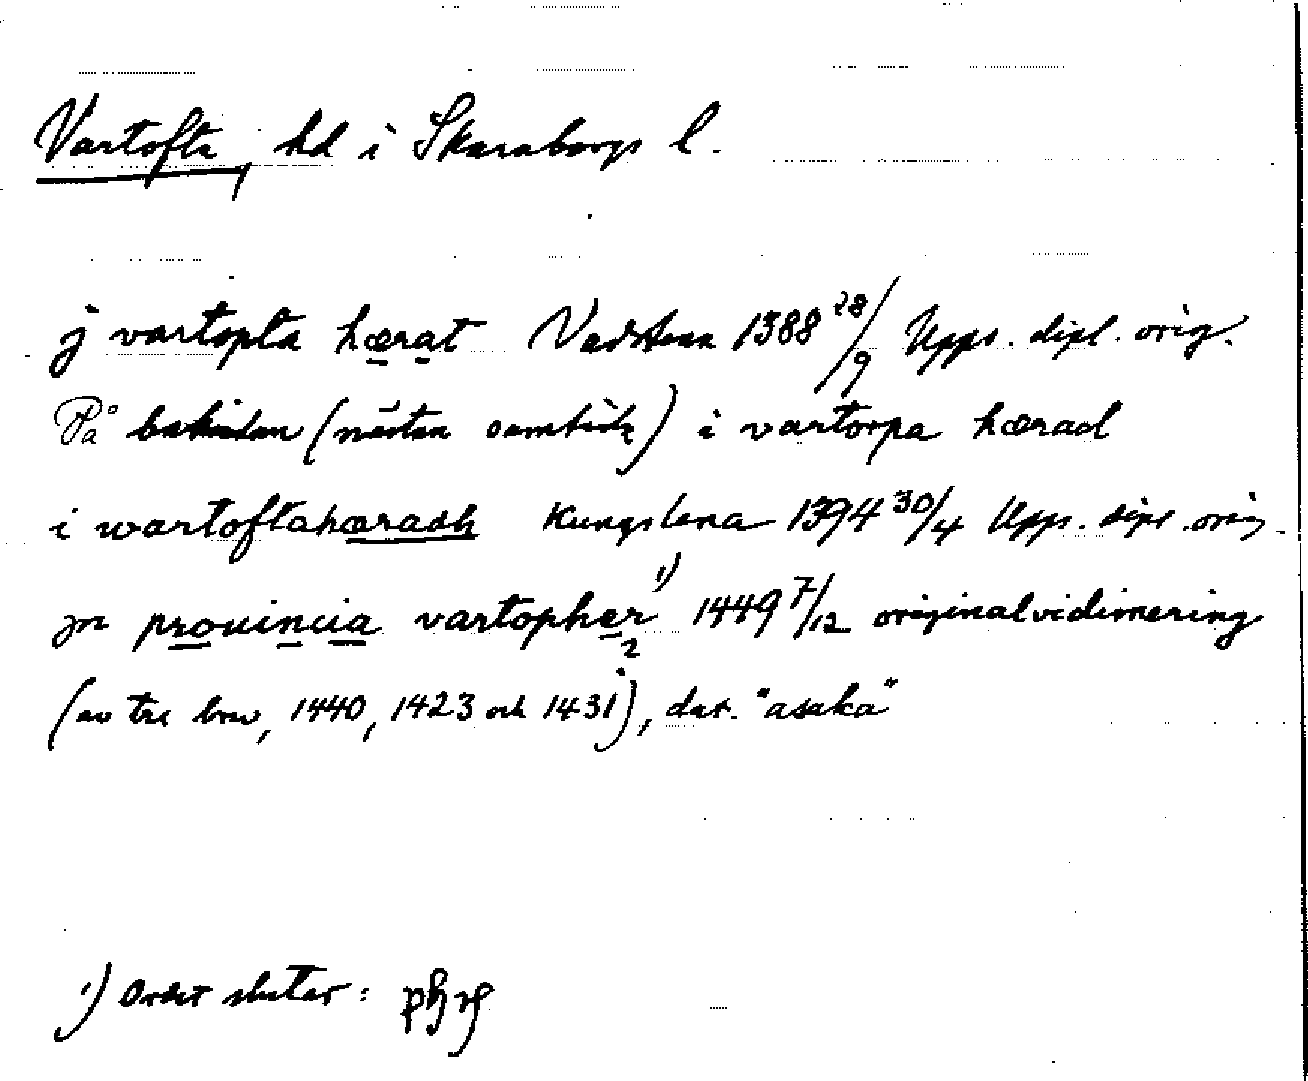 Vartofta, hd i Skaraborgs l.
j vartopta hærat Vadstena 1388 28/9 Upps. dipl. orig.
På baksidan (nästan samtidig) i vartorpa hærad
i wartoftahæradh Kungslena 1394 30/4 Upps. dipl. orig.
jn prouincia vartopher 1) 1449 7/12 originalvidimering
(av tre brev, 1440, 1423 och 1431), dat. "asaka"
1) Ordet slutar: